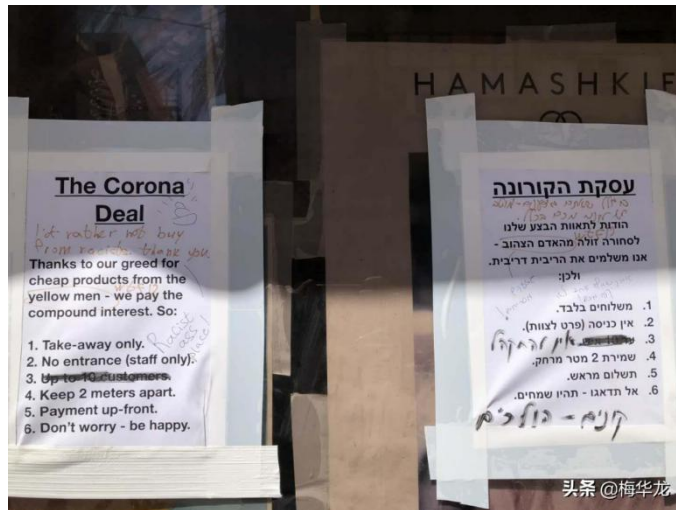 HAMASHKIF
The Corona
Deal
I'd rather not buy
from racists. thank you.
Thanks to our greed for
cheap products from the
yellow men - we pay the
compound interest. So:
Racist
ass
place!
1. Take-away only.
2. No entrance (staff only).
3. Up to 10 customers.
4. Keep 2 meters apart.
5. Payment up-front.
6. Don't worry - be happy.
עסקת הקורונה
הודות לתאוות הבצע שלנו
לסחורה זולה מהאדם הצהוב -
אנו משלמים את הריבית דריבית.
ולכן:
1. משלוחים בלבד.
2. אין כניסה (פרט לצוות).
3. אין להתקהל
4. שמירת 2 מטר מרחק.
5. תשלום מראש.
6. אל תדאגו - תהיו שמחים.
קונים - הולכים
头条 @梅华龙